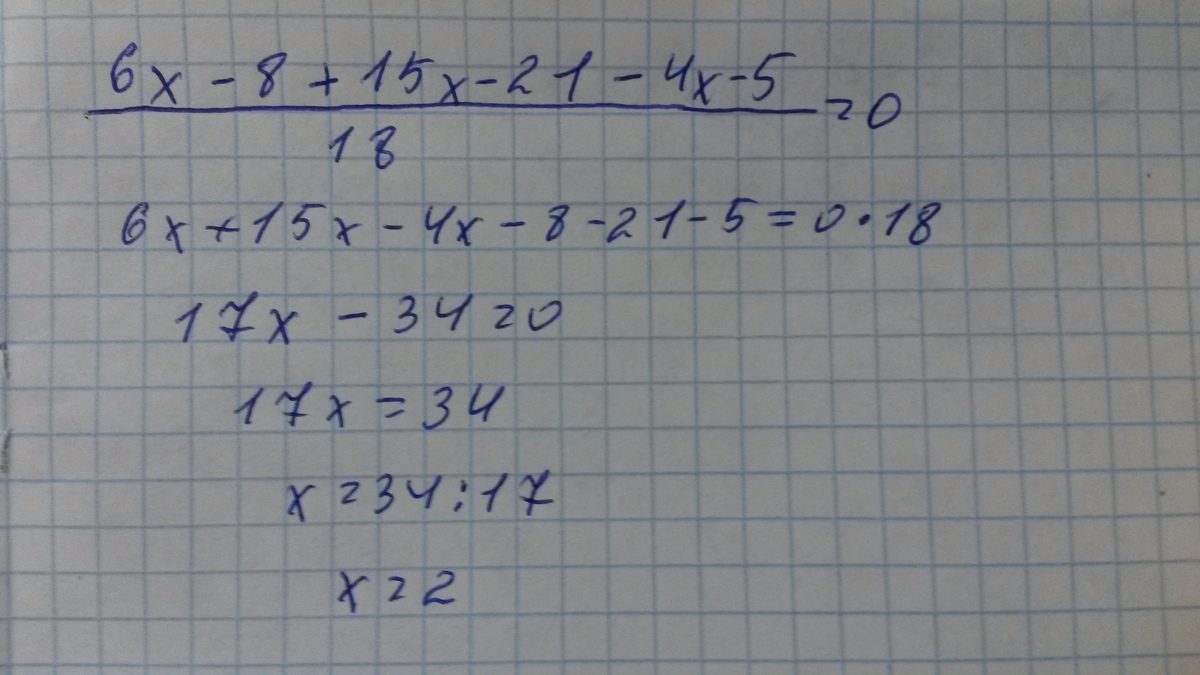 6x - 8 + 15x - 21 - 4x - 5 = 0
18
6x + 15x - 4x - 8 - 21 - 5 = 0 · 18
17x - 34 = 0
17x = 34
x = 34 : 17
x = 2